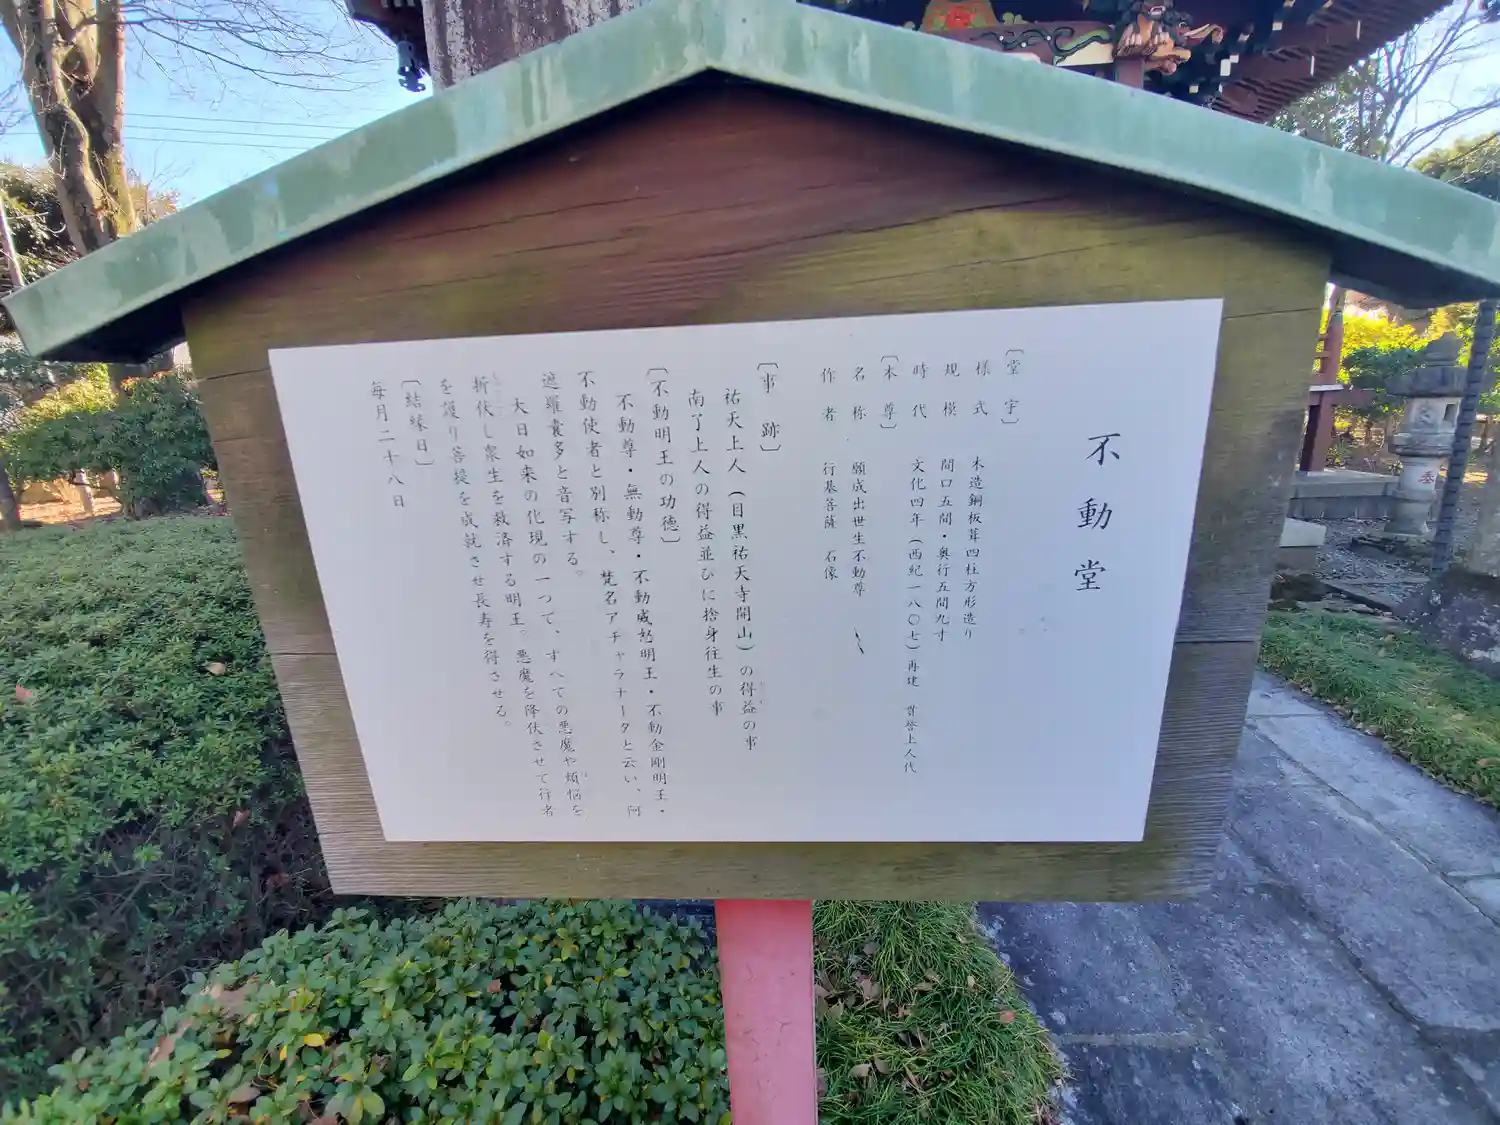 不動堂
〔堂宇〕
様式 木造銅板葺四柱方形造り
規模 間口五間・奥行五間九寸
時代 文化四年(西紀一八〇七)再建 貫誉上人代
〔本尊〕
名称 願成出世生不動尊
作者 行基菩薩 石像
〔事跡〕
祐天上人(目黒祐天寺開山)の得益の事
南了上人の得益並びに捨身往生の事
〔不動明王の功徳〕
不動尊・無動尊・不動威怒明王・不動金剛明王・
不動使者と別称し、梵名アチャラナータと云い、阿
遮羅嚢多と音写する。
大日如来の化現の一つで、すべての悪魔や煩悩を
折伏し衆生を救済する明王。悪魔を降伏させて行者
を護り菩提を成就させ長寿を得させる。
〔結縁日〕
毎月二十八日